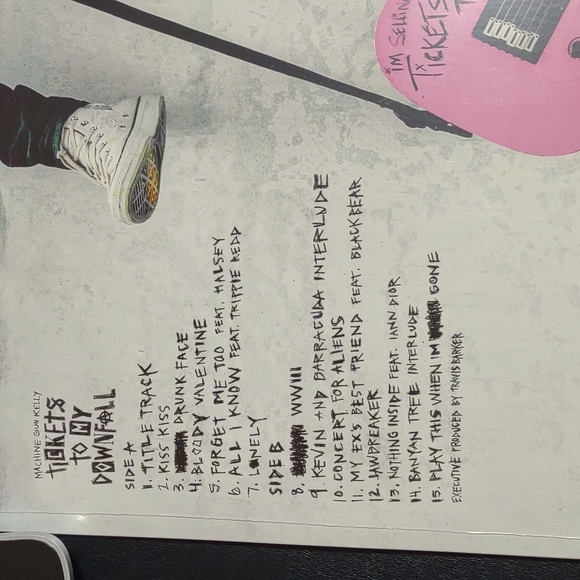 MACHINE GUN KELLY
TICKETS
TO MY
DOWNFALL
SIDE A
1. TITLE TRACK
2. KISS KISS
3. DRUNK FACE
4. BLOODY VALENTINE
5. FORGET ME TOO FEAT. HALSEY
6. ALL I KNOW FEAT. TRIPPIE REDD
7. LONELY
SIDE B
8. WWIII
9. KEVIN AND BARRACUDA INTERLUDE
10. CONCERT FOR ALIENS
11. MY EX'S BEST FRIEND FEAT. BLACKBEAR
12. JAWBREAKER
13. NOTHING INSIDE FEAT. IANN DIOR
14. BANYAN TREE INTERLUDE
15. PLAY THIS WHEN I'M GONE
EXECUTIVE PRODUCED BY TRAVIS BARKER
I'M SELLIN
TICKETS